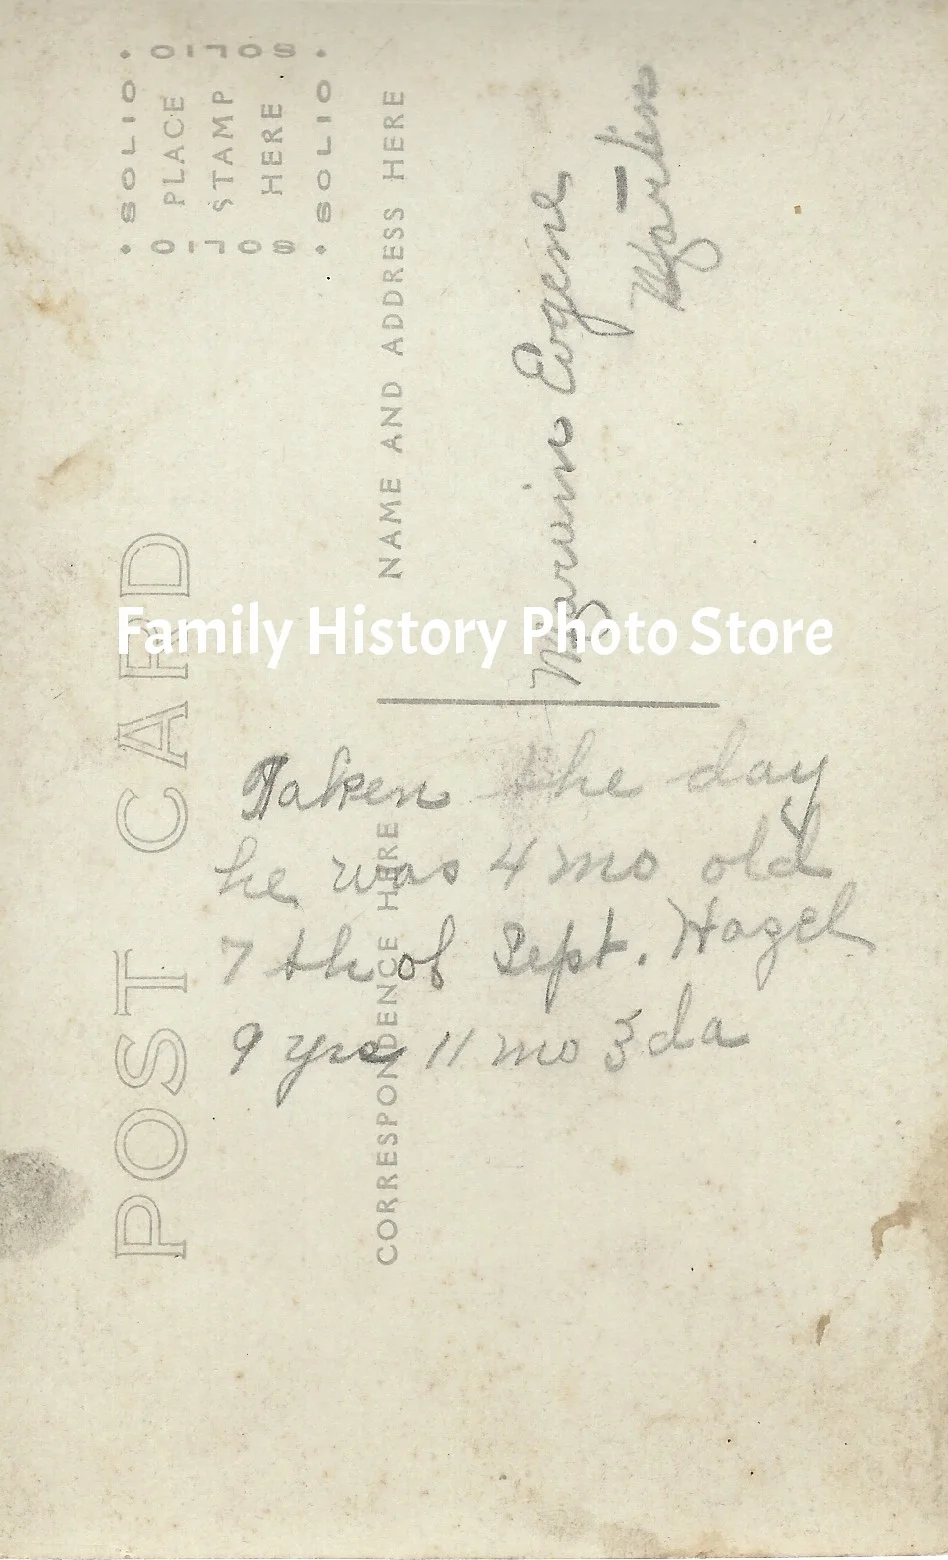 SOLIO SOLIO SOLIO SOLIO
PLACE
STAMP
HERE
POST CARD
NAME AND ADDRESS HERE
CORRESPONDENCE HERE
Marvin Eugene
Martin
Family History Photo Store
Taken the day
he was 4 mo old
7th of Sept. Hazel
9 yrs 11 mo 3 da